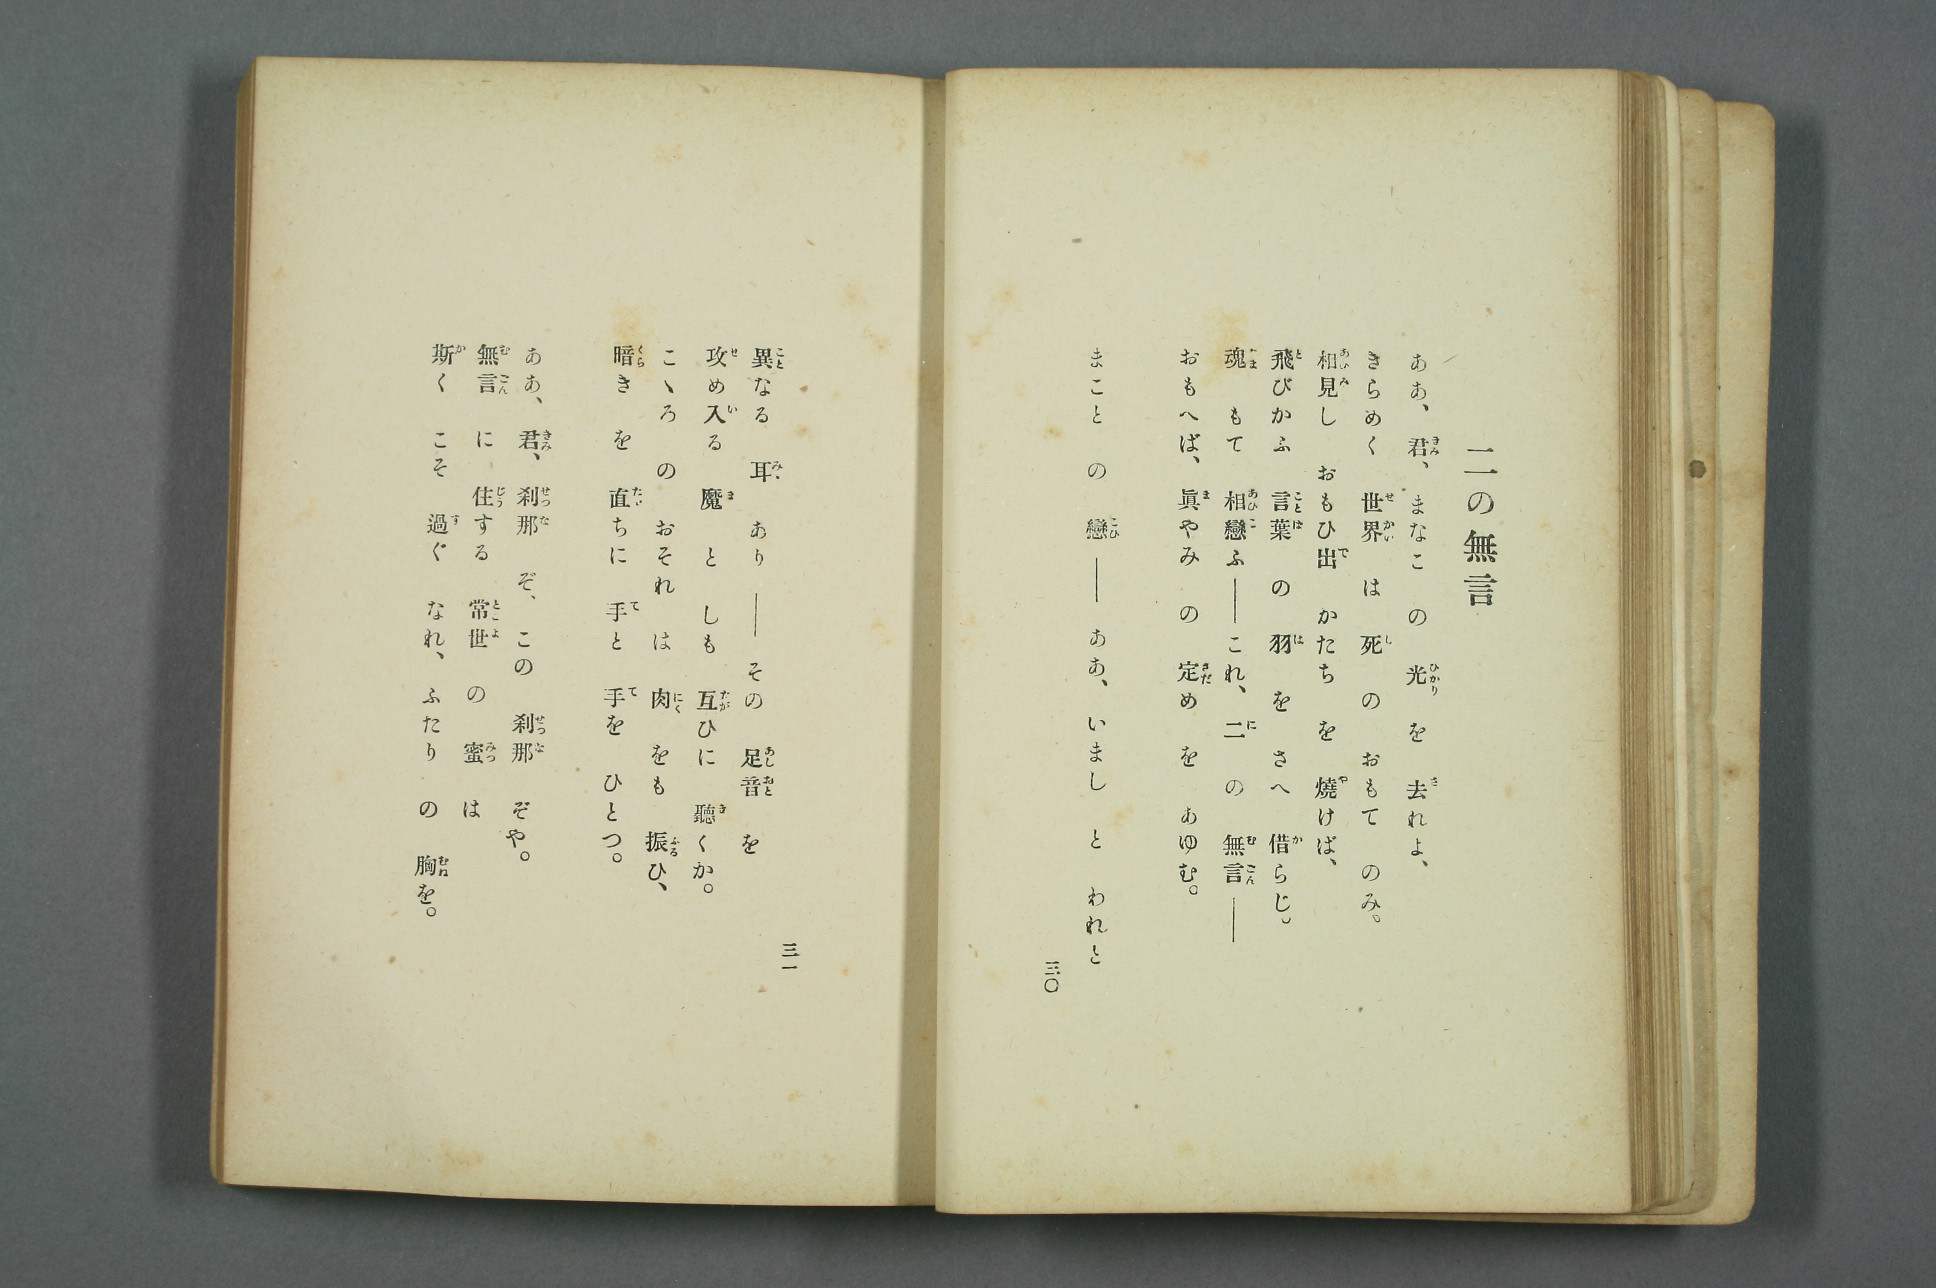 二の無言
ああ、君、まなこ の 光 を 去れよ、
きらめく 世界 は 死 の おもて のみ。
相見し おもひ出 かたち を 燒けば、
飛びかふ 言葉 の 羽 を さへ 借らじ。
魂 もて 相戀ふ――これ、二 の 無言――
おもへば、眞やみ の 定め を あゆむ。
まこと の 戀――ああ、いまし と われと
三〇
異なる 耳 あり――その 足音 を
攻め入る 魔 と しも 互ひに 聽くか。
こゝろ の おそれ は 肉 をも 振ひ、
暗き を 直ちに 手と 手を ひとつ。
ああ、君、刹那 ぞ、この 刹那 ぞや。
無言 に 住する 常世 の 蜜 は
斯く こそ 過ぐ なれ、ふたり の 胸を。
三一